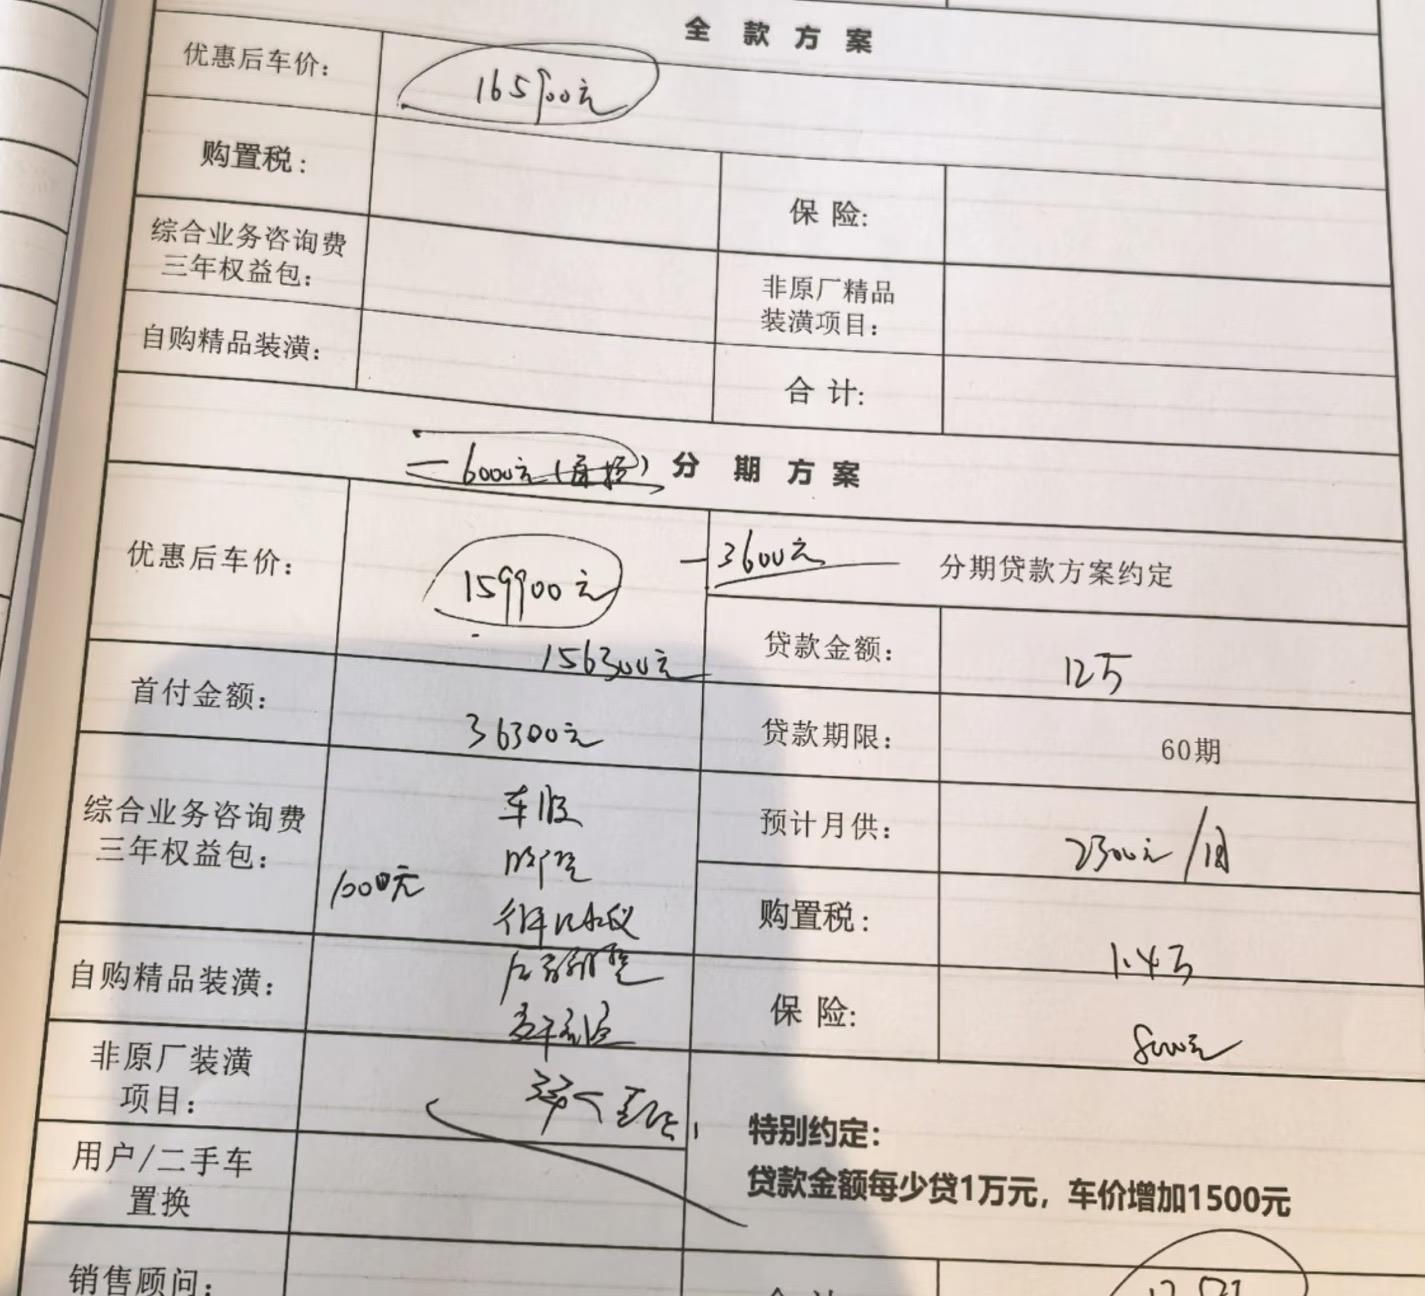 全 款 方 案
优惠后车价： 165900元
购置税： 保 险:
综合业务咨询费
三年权益包：
非原厂精品
装潢项目：
自购精品装潢： 合 计:
－6000元 分 期 方 案
优惠后车价： 159900元 －3600元 分期贷款方案约定
156300元
贷款金额： 12万
首付金额： 36300元 贷款期限： 60期
综合业务咨询费
三年权益包：
1000元
车险
预计月供： 2300元/月
购置税： 1.4万
行车记录仪
自购精品装潢： 保 险: 8000元
非原厂装潢
项目：
用户/二手车
置换
特别约定：
贷款金额每少贷1万元，车价增加1500元
销售顾问：